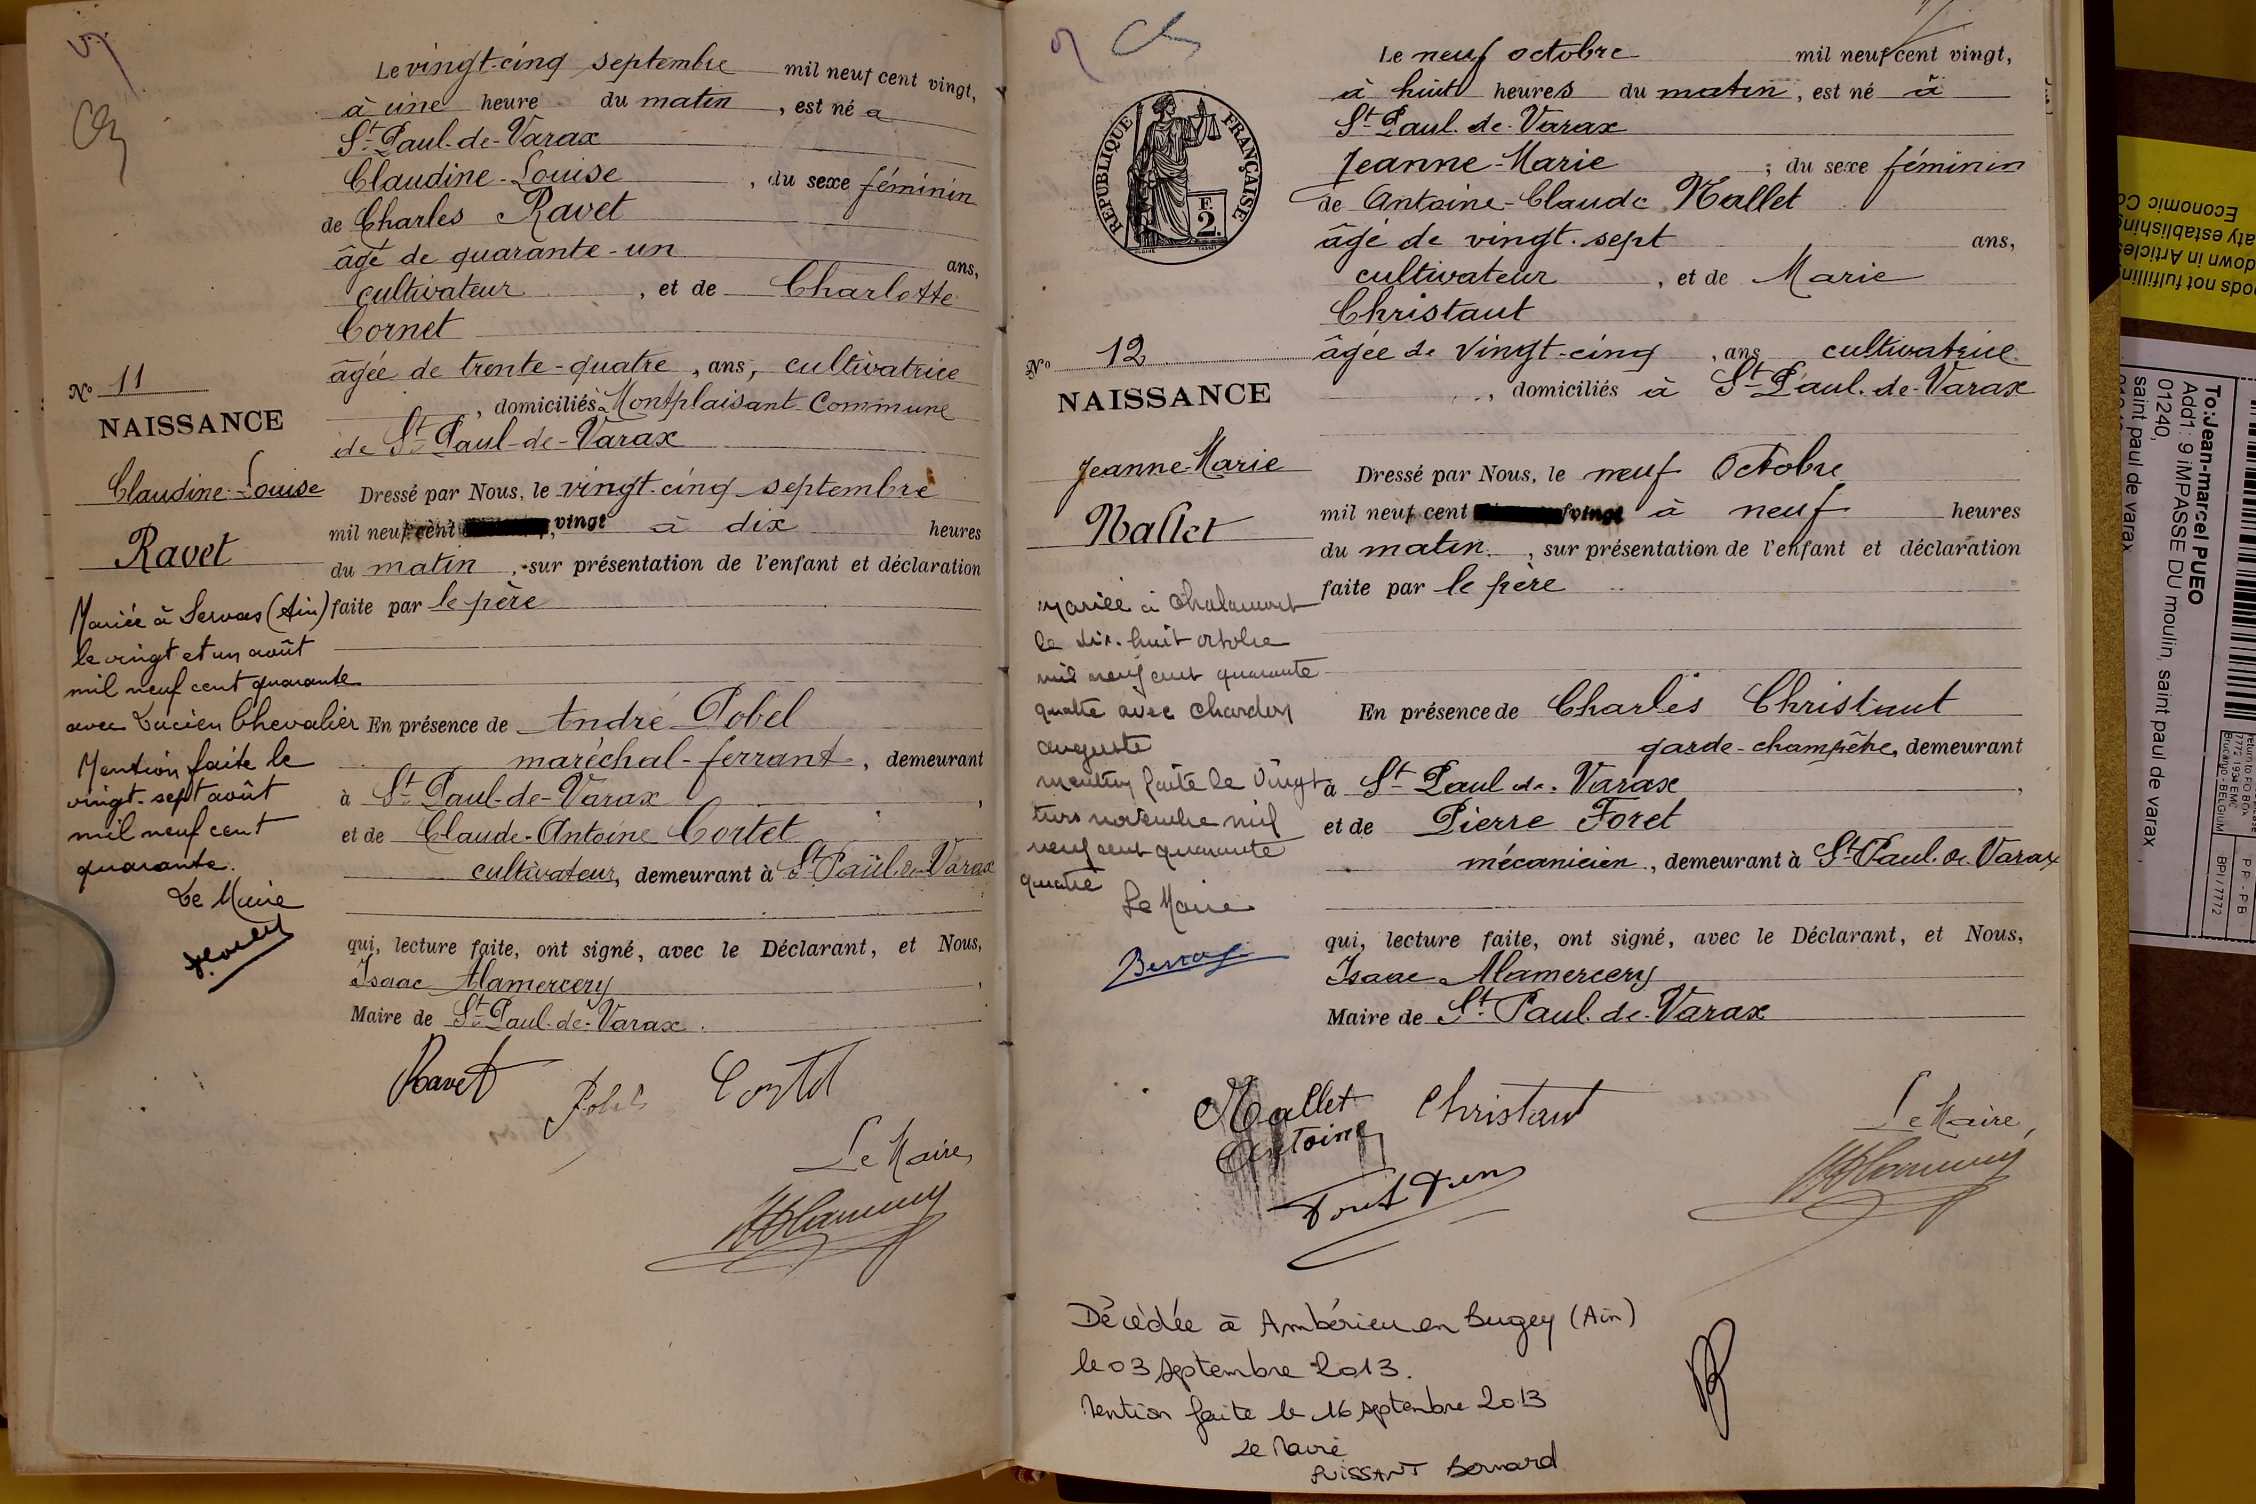 Le vingt-cinq septembre mil neuf cent vingt,
à une heure du matin, est né à
St Paul-de-Varax
Claudine-Louise, du sexe féminin
de Charles Ravet
âgé de quarante-un ans,
cultivateur, et de Charlotte
Cornet
âgée de trente-quatre, ans, cultivatrice
, domiciliés à Montplaisant Commune
de St Paul-de-Varax
Nº 11
NAISSANCE
Claudine-Louise
Ravet
Dressé par Nous, le vingt-cinq septembre
mil neuf cent vingt à dix heures
du matin, sur présentation de l'enfant et déclaration
faite par le père
Mariée à Servas (Ain)
le vingt et un août
mil neuf cent quarante
avec Lucien Chevalier
Mention faite le
vingt-sept août
mil neuf cent
quarante.
Le Maire
En présence de André Pobel
maréchal-ferrant, demeurant
à St Paul-de-Varax,
et de Claude-Antoine Cortet
cultivateur, demeurant à St Paul de Varax
qui, lecture faite, ont signé, avec le Déclarant, et Nous,
Isaac Alamercery,
Maire de St Paul-de-Varax.
Ravet Pobel Cortet
Le Maire,
Le neuf octobre mil neuf cent vingt,
à huit heures du matin, est né à
St Paul-de-Varax
Jeanne-Marie, du sexe féminin
de Antoine-Claude Mallet
âgé de vingt-sept ans,
cultivateur, et de Marie
Christaut
âgée de vingt-cinq, ans cultivatrice
, domiciliés à St Paul-de-Varax
RÉPUBLIQUE FRANÇAISE
F.
2.
Nº 12
NAISSANCE
Jeanne-Marie
Mallet
Dressé par Nous, le neuf Octobre
mil neuf cent vingt à neuf heures
du matin, sur présentation de l'enfant et déclaration
faite par le père
Mariée à Chalamont
le dix-huit octobre
mil neuf cent quarante
quatre avec Chardon
Auguste
mention faite le vingt
trois novembre mil
neuf cent quarante
quatre
Le Maire
En présence de Charles Christaut
garde-champêtre, demeurant
à St Paul-de-Varax,
et de Pierre Foret
mécanicien, demeurant à St Paul de Varax
qui, lecture faite, ont signé, avec le Déclarant, et Nous,
Isaac Alamercery
Maire de St Paul-de-Varax
Mallet Christaut
Antoine
Le Maire,
Décédée à Ambérieu en Bugey (Ain)
le 03 septembre 2013.
Mention faite le 16 septembre 2013
Le Maire
PUISSANT Bernard
To:Jean-marcel PUEO
Add1: 9 iMPASSE DU moulin, saint paul de varax
01240,
saint paul de varax
BPI / 7772
PP - PB